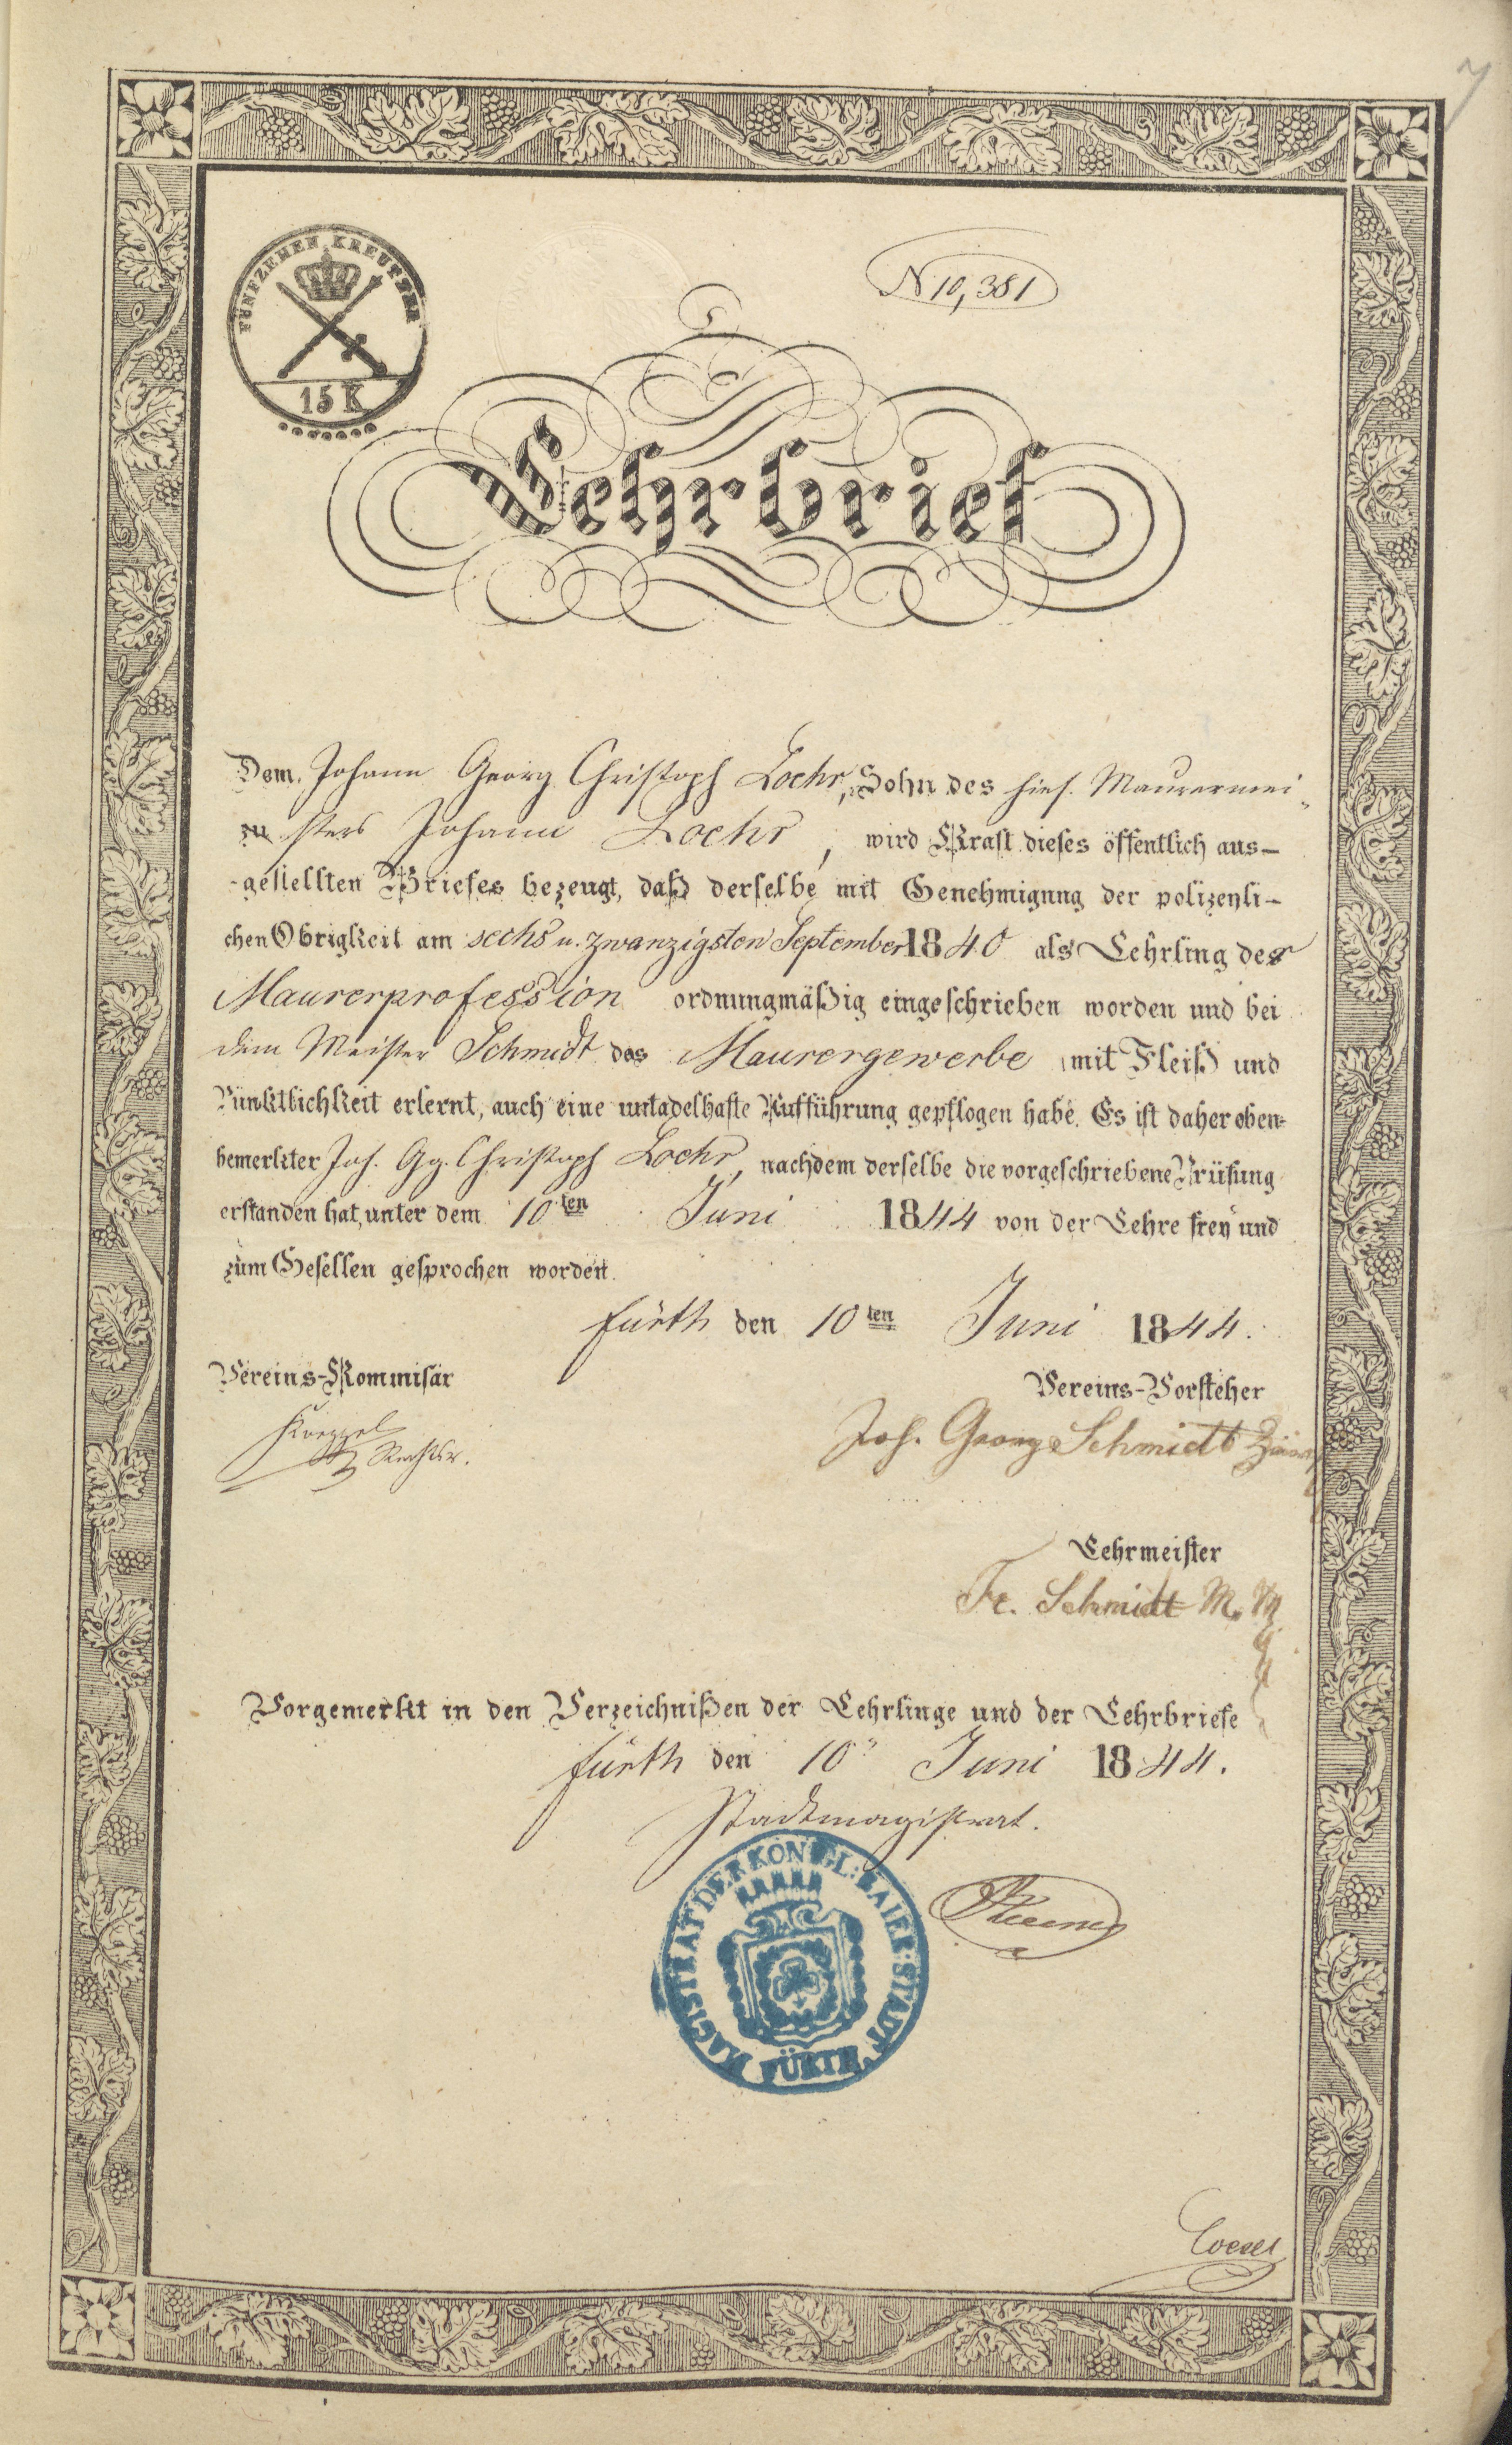 7
FÜNFZEHEN KREUTZER
15 K
N 10,381
Lehrbrief
Dem Johann Georg Christoph Lochr, Sohn des hies. Maurermei-
zu sters Johann Lochr, wird Kraft dieses öffentlich aus-
-gestellten Briefes bezeugt, daß derselbe mit Genehmigung der polizeyli-
chen Obrigkeit am sechs u. zwanzigsten September 1840 als Lehrling der
Maurerprofession ordnungmäßig eingeschrieben worden und bei
dem Meister Schmidt das Maurergewerbe mit Fleiß und
Pünktlichkeit erlernt, auch eine untadelhafte Aufführung gepflogen habe. Es ist daher oben-
bemerkter Joh. Gg. Christoph Lochr, nachdem derselbe die vorgeschriebene Prüfung
erstanden hat, unter dem 10ten Juni 1844 von der Lehre frey und
zum Gesellen gesprochen worden.
Fürth den 10ten Juni 1844.
Vereins-Kommisär
Vereins-Vorsteher
Joh. Georg Schmidt
Lehrmeister
Fr. Schmidt M. M
Vorgemerkt in den Verzeichnißen der Lehrlinge und der Lehrbriefe
Fürth den 10" Juni 1844.
Stadtmagistrat.
MAGISTRAT DER KÖNIGL: BAIER: STADT FÜRTH